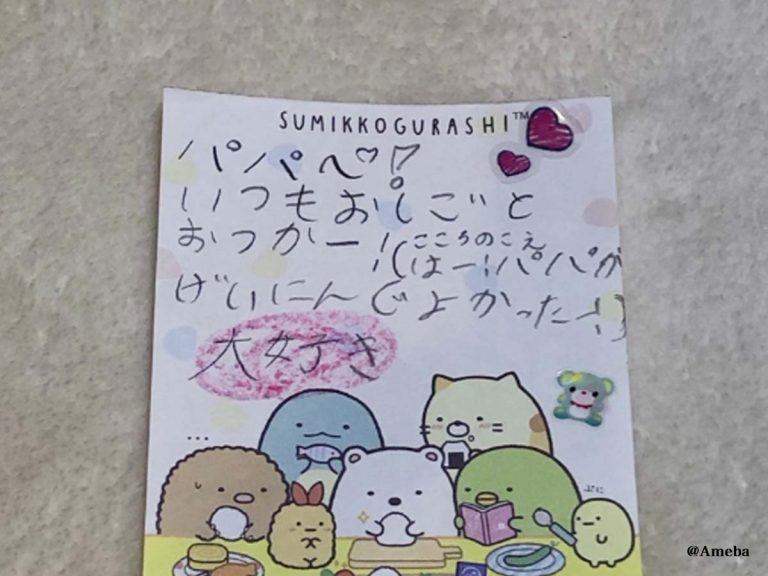 SUMIKKOGURASHI™
パパへ♡♡
いつもおしごと
おつかー!(こころのこえ
はー!パパが
げいにんでよかったー!)
大好き
...
ぷに
@Ameba